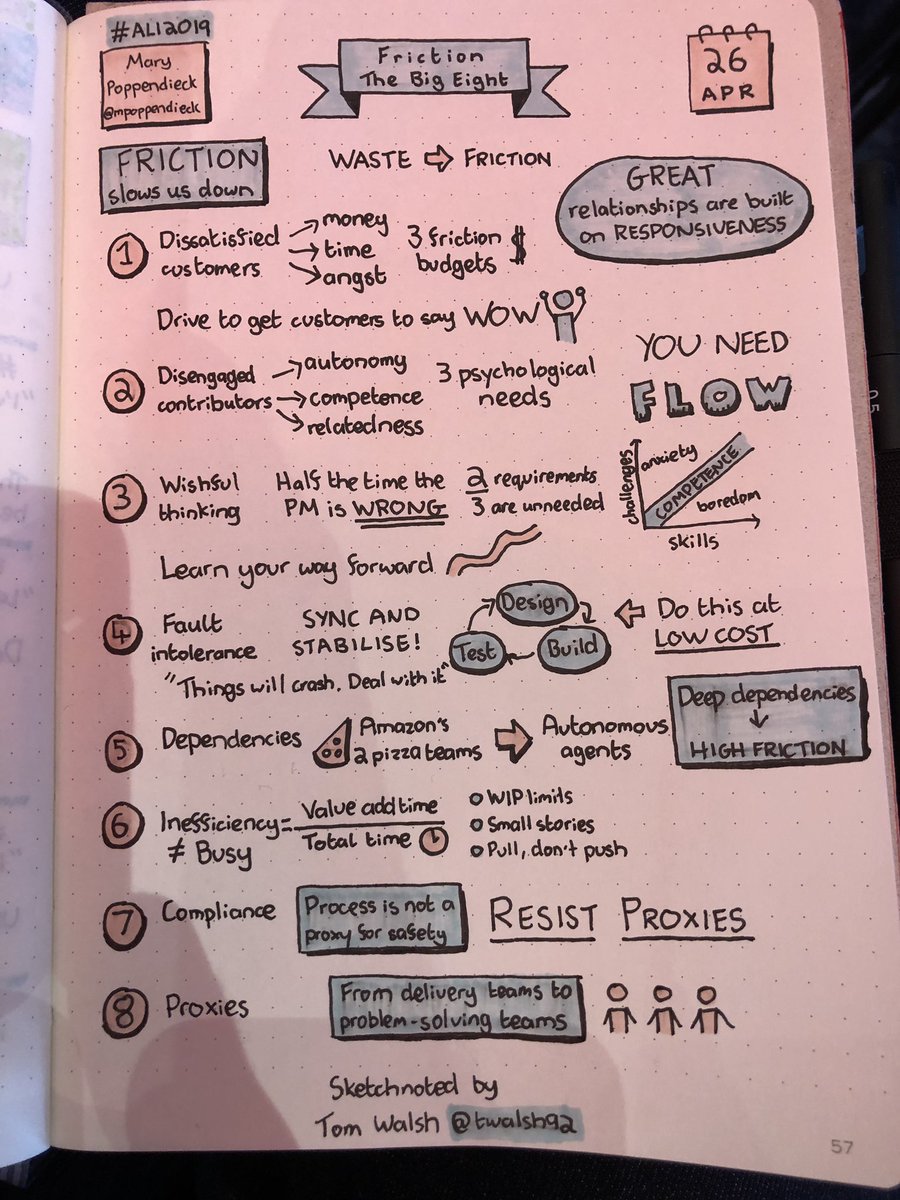 #ALI2019
Mary
Poppendieck
@mpoppendieck
Friction
The Big Eight
26
APR
FRICTION
slows us down
WASTE ⇨ FRICTION
GREAT
relationships are built
on RESPONSIVENESS
1 Dissatisfied
customers
→ money
→ time
→ angst
3 friction
budgets $
Drive to get customers to say WOW
YOU NEED
FLOW
2 Disengaged
contributors
→ autonomy
→ competence
→ relatedness
3 psychological
needs
challenges
anxiety
COMPETENCE
boredom
skills
3 Wishful
thinking
Half the time the
PM is WRONG
2 requirements
3 are unneeded
Learn your way forward
4 Fault
intolerance
SYNC AND
STABILISE!
Design
Build
Test
Do this at
LOW COST
"Things will crash. Deal with it"
5 Dependencies
Amazon's
2 pizza teams
Autonomous
agents
Deep dependencies
↓
HIGH FRICTION
6 Inefficiency =
≠ Busy
Value add time
Total time
WIP limits
Small stories
Pull, don't push
7 Compliance
Process is not a
proxy for safety
RESIST PROXIES
8 Proxies
From delivery teams to
problem-solving teams
Sketchnoted by
Tom Walsh @twalsh92
57